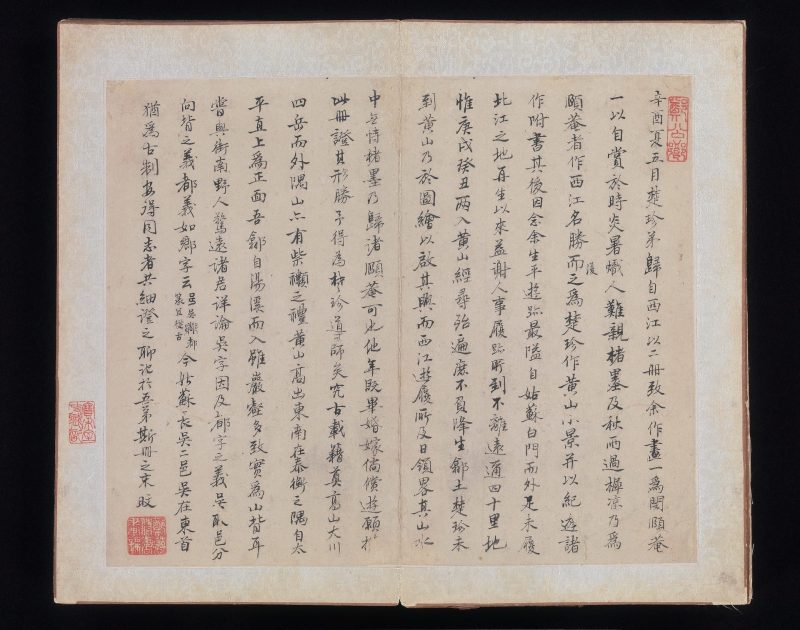 辛酉夏五月楚珍弟歸自西江以二冊致余作畫一為閔頤菴
一以自賞於時炎暑爍人難親楮墨及秋雨過樨涼乃為
頤菴者作西江名勝而之為楚珍作黃山小景并以紀遊諸
復
作附書其後因念余生平遊跡最隘自姑蘇白門而外足未履
北江之地再生以來益謝人事履跡所到不離遠邇四十里地
惟庚戌癸丑兩入黃山經尋殆遍庶不負降生鄣土楚珍未
到黃山乃於圖繪以啟其興而西江遊履所及日領畧其山水
中無恃楮墨乃歸諸頤菴可也他年既畢婚嫁倘償遊願於
此冊證其形勝予得為楚珍導師矣究古載籍莫高山大川
四岳而外隅山亦有柴禷之禮黃山高出東南在泰衡之隅自太
平直上為正面吾鄣自湯溪而入雖巖壑多致實為山背耳
曾與衡南野人驚遠諸君詳論吳字因及都字之義吳取邑分
向背之義都義如鄉字云
今姑蘇長吳二邑吳在東首
猶為古制安得同志者共細證之聊記於吾弟斯冊之末旼